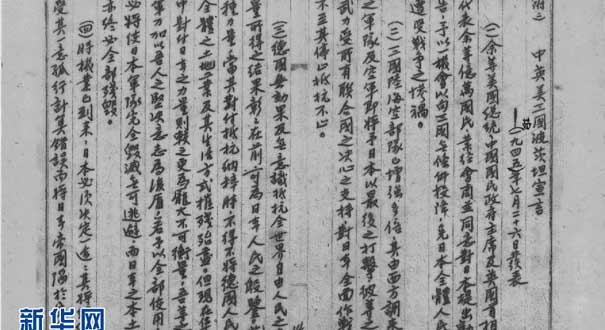 附二 中英美三國波茨坦宣言
一九四五年七月二十六日發表
(一)余等美國總統中國國民政府主席及英國首相
代表余等億萬國民業經會商並同意對日本提出勸
告予以一機會以向三國無條件投降免日本全體人民
遭受戰爭之慘禍。
(二)三國陸海空部隊已增強多倍其由西方調來
之軍隊及空軍即將予日本以最後之打擊彼等之
武力受所有聯合國之決心之支持對日本全面作戰
不至其停止抵抗不止。
(三)德國無效果及無意識抵抗全世界自由人民之
量所得之結果彰彰在前可為日本人民之殷鑒
種力量當其對付抵抗納粹時不得不將德國人民
全體之土地工業及其生活方式摧殘殆盡但現在
中對付日本之力量則較之更為龐大不可衡量吾等之
軍力加以吾人之堅決意志為後盾若予以全部使用
必將使日本軍隊完全毀滅無可逃避而日本之本土
亦終必全部殘毀。
(四)時機業已到來日本必須決定一途其將
受其一意孤行計算錯誤而將日本帝國陷於
新华网